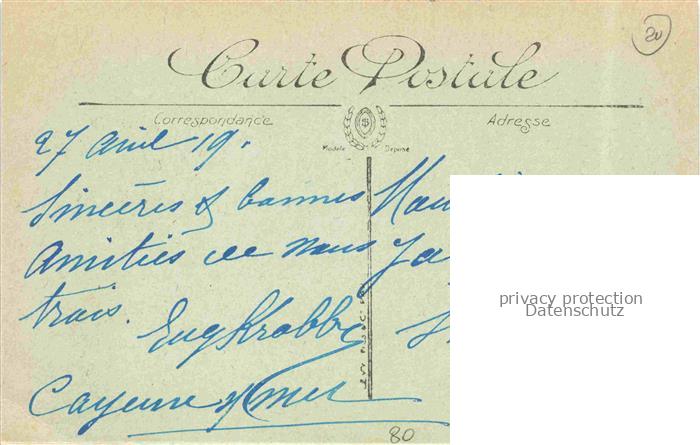 20
Carte Postale
Correspondance
Adresse
Modèle Déposé
27 avril 19.
Sincères & bonnes
Amitiés de nous
trois.
Eug Krabbe
Cayeux s/mer
80
privacy protection
Datenschutz